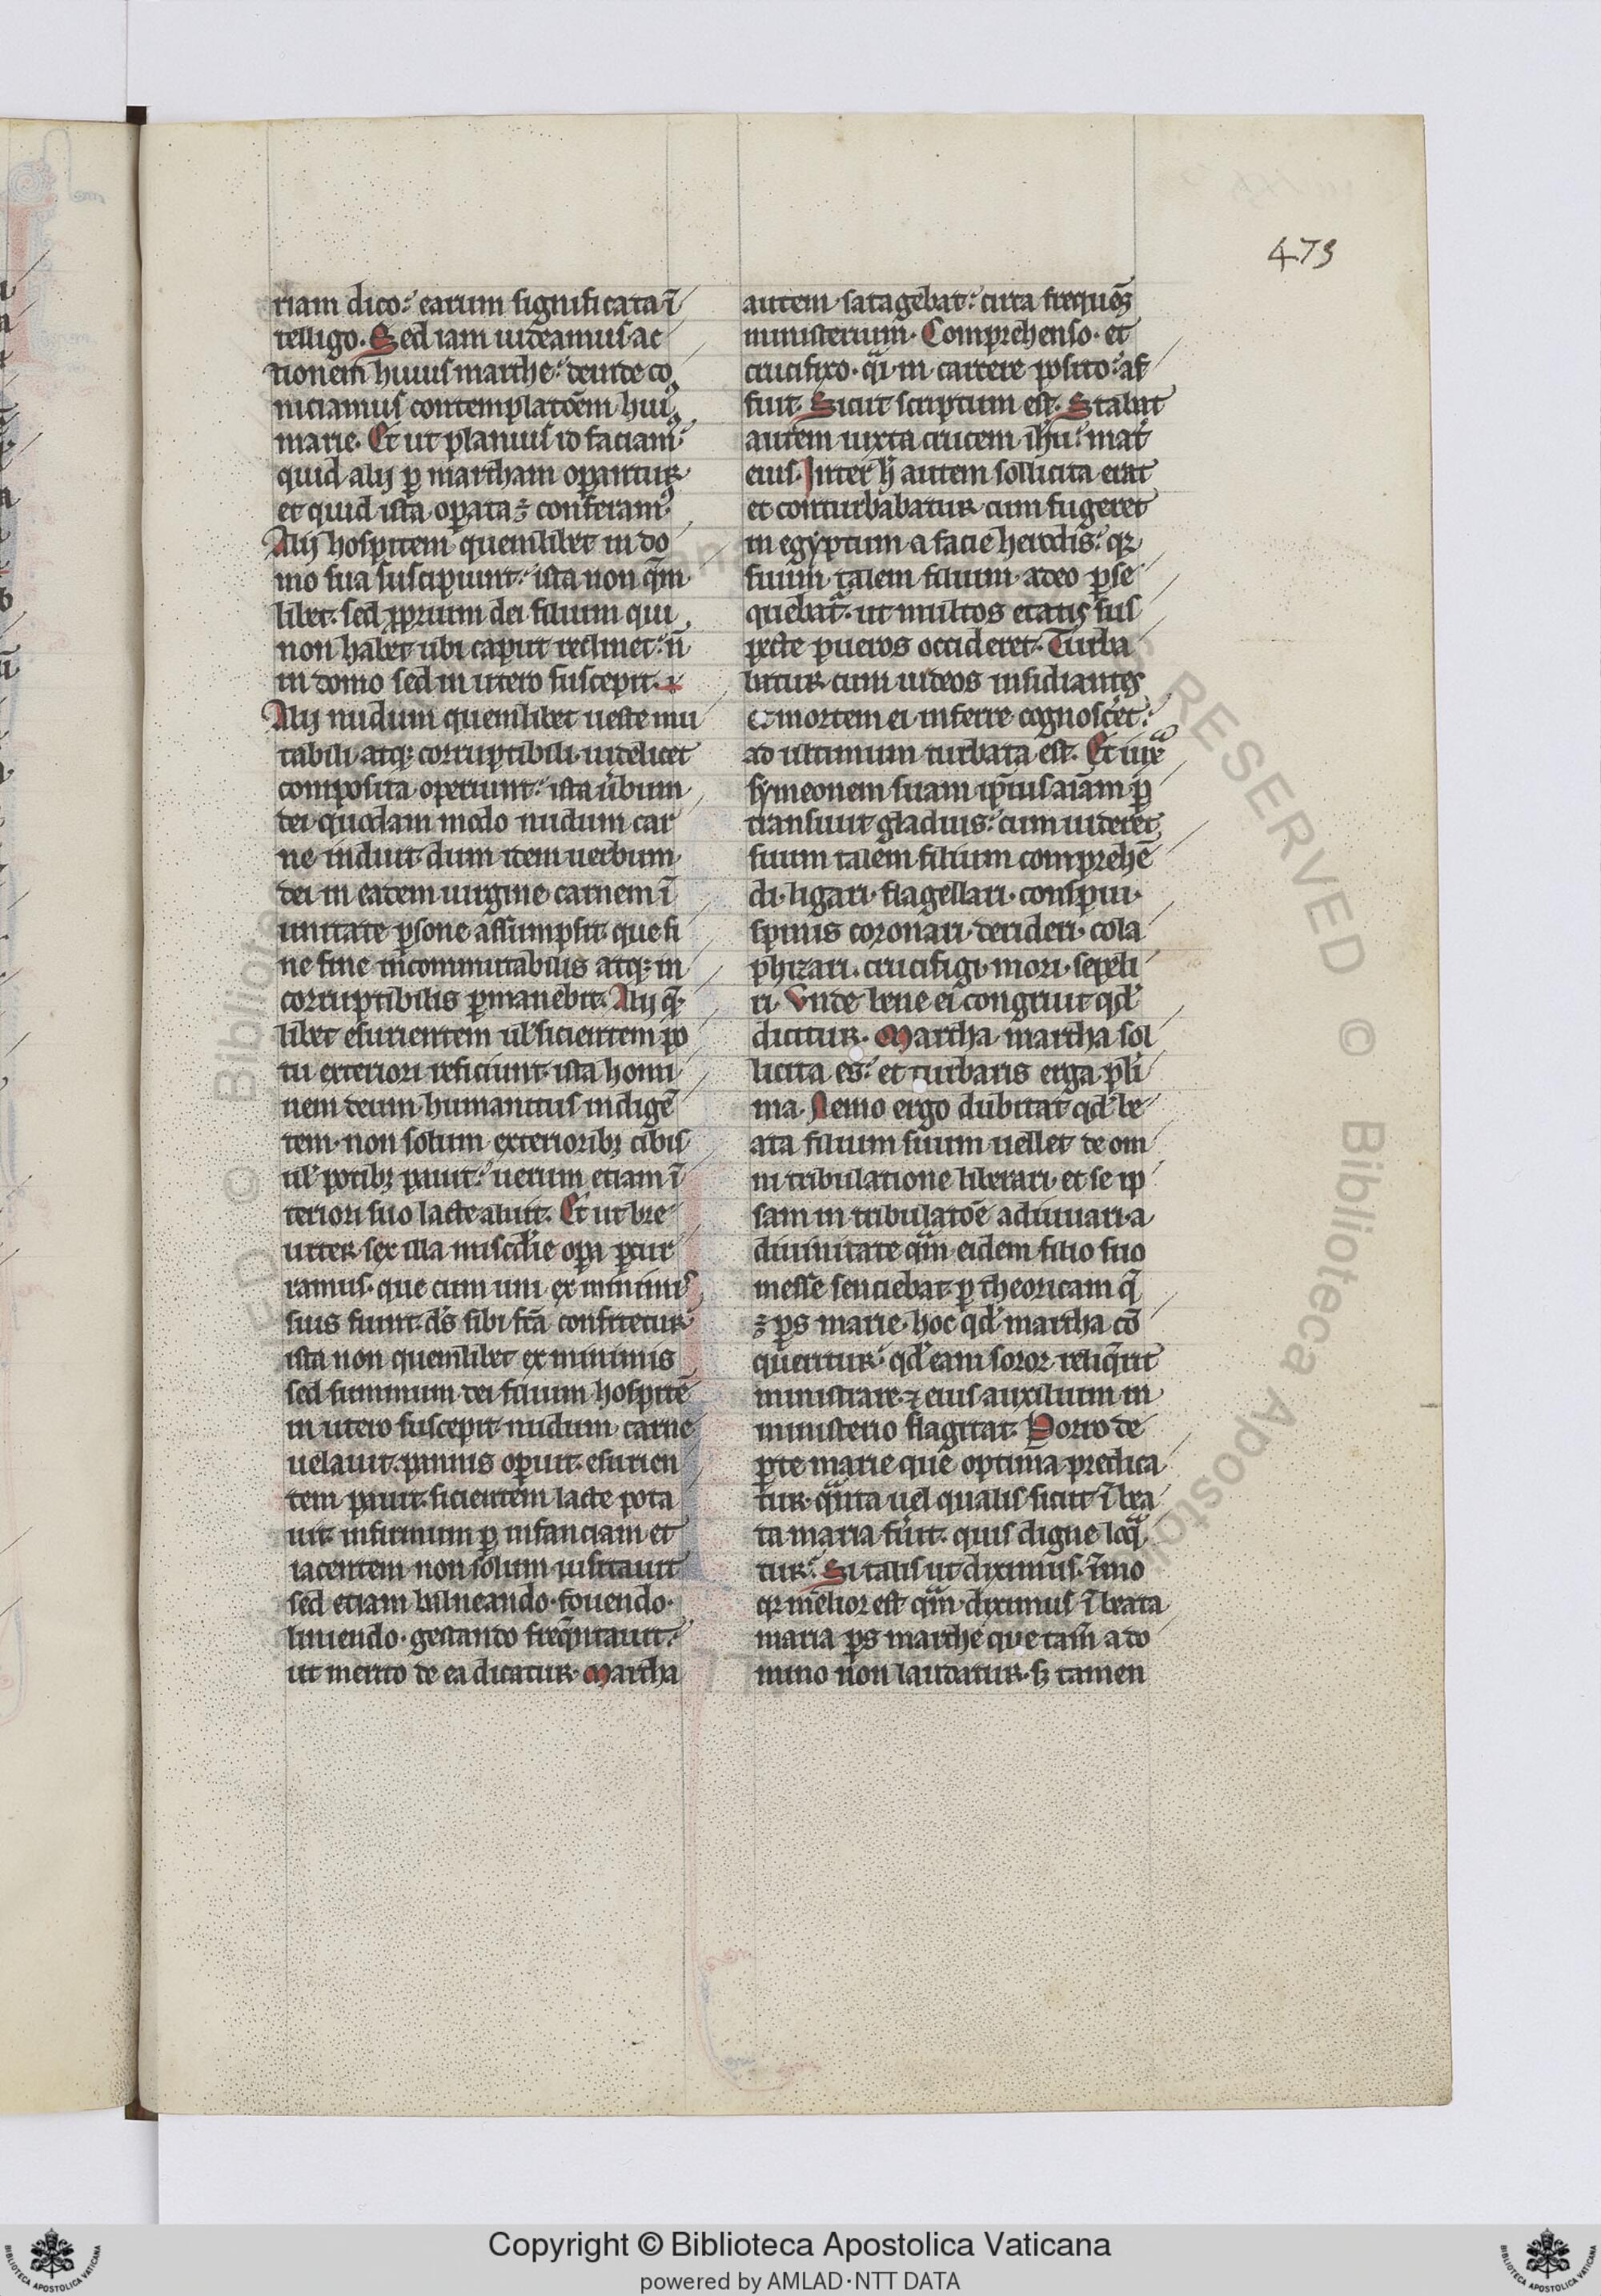 473
riam dico: earum significata ī
telligo. Sed iam uideamus ac
tionem huius marthe: deinde co
niciamus contemplatōem hui9
marie. Et ut planius id faciam9:
quid alij ꝑ martham operantur
et quid ista operata ē conferam9.
Alij hospitem quemlibet in do
mo sua suscipiunt: ista non q̄m
libet sed ꝓprium dei filium qui
non habet ubi caput reclinet: n̄
in domo sed in utero suscepit.
Alij nudum quemlibet ueste mu
tabili atq; corruptibili uidelicet
composita operiunt: ista ūbum
dei quodam modo nudum car
ne induit dum idem uerbum
dei in eadem uirgine carnem ī
unitate ꝑsone assumpsit que si
ne fine incommutabilis atq; in
corruptibilis ꝑmanebit. Alij quē
libet esurientem ul' sicientem po
tu exteriori reficiunt. ista homi
nem deum humanitus indigē
tem non solum exteriorib; cibis
ul' potib; pauit: uerum etiam ī
teriori suo lacte aluit. Et ut bre
uiter sex illa mīscdīe oꝑa ꝑcur
ramus. que cum uni ex minimis
suis fiunt. ds̄ sibi fcā confitetur
ista non quemlibet ex minimis
sed summum dei filium hospitē
in utero suscepit. nudum carne
uelauit. pannis operuit. esurien
tem pauit. sicientem lacte pota
uit. infirmum ꝑ infanciam et
iacentem non solum uisitauit
sed etiam balneando. fouendo.
liniendo. gestando freq̄ntauit:
ut merito de ea dicatur. Martha
autem satagebat: circa frequēs
ministerium. Comprehenso. et
crucifixo. q̄i in carcere posito: af
fuit. Sicut scriptum est. Stabat
autem iuxta crucem ihū: mat̄
eius. Inter h̄ autem sollicita erat
et conturbabatur cum fugeret
in egyptum a facie herodis: qz
suum talem filium adeo ꝑse
quebat̄. ut multos etatis sus
pecte pueros occideret. Turba
batur cum iudeos insidiantes
et mortem ei inferre cognoscēt:
ad ultimum turbata est. Et iuxa
symeonem suam ip̄ius aiam ꝑ
transiuit gladius: cum uideret
suum talem filium comprehē
di. ligari. flagellari. conspui.
spinis coronari. derideri. cola
phizari. crucifigi. mori. sepeli
ri. Vnde bene ei congruit qd'
dicitur. Martha martha sol
licita es: et turbaris erga pl'i
ma. Nemo ergo dubitat qd' be
ata filium suum uellet de om
ni tribulatione liberari. et se ip
sam in tribulatōe adiuuari a
diuinitate q̄m eidem filio suo
inesse senciebat. ꝑ theoricam q̄
ē ꝑs marie. hoc qd' martha cō
queritur. qd' eam soror reliq̄rit
ministrare. ⁊ eius auxilium in
ministerio flagitat. Porro de
ꝑte marie que optima predica
tur. q̄nta uel qualis sicut ī bea
ta maria fūit. quis digne loq̄
tur: Si talis ut diximus. īmo
qr melior est q̄m diximus ī beata
maria ꝑs marthe que tam̄ a do
mino non laudatur. s; tamen
Copyright © Biblioteca Apostolica Vaticana
powered by AMLAD·NTT DATA